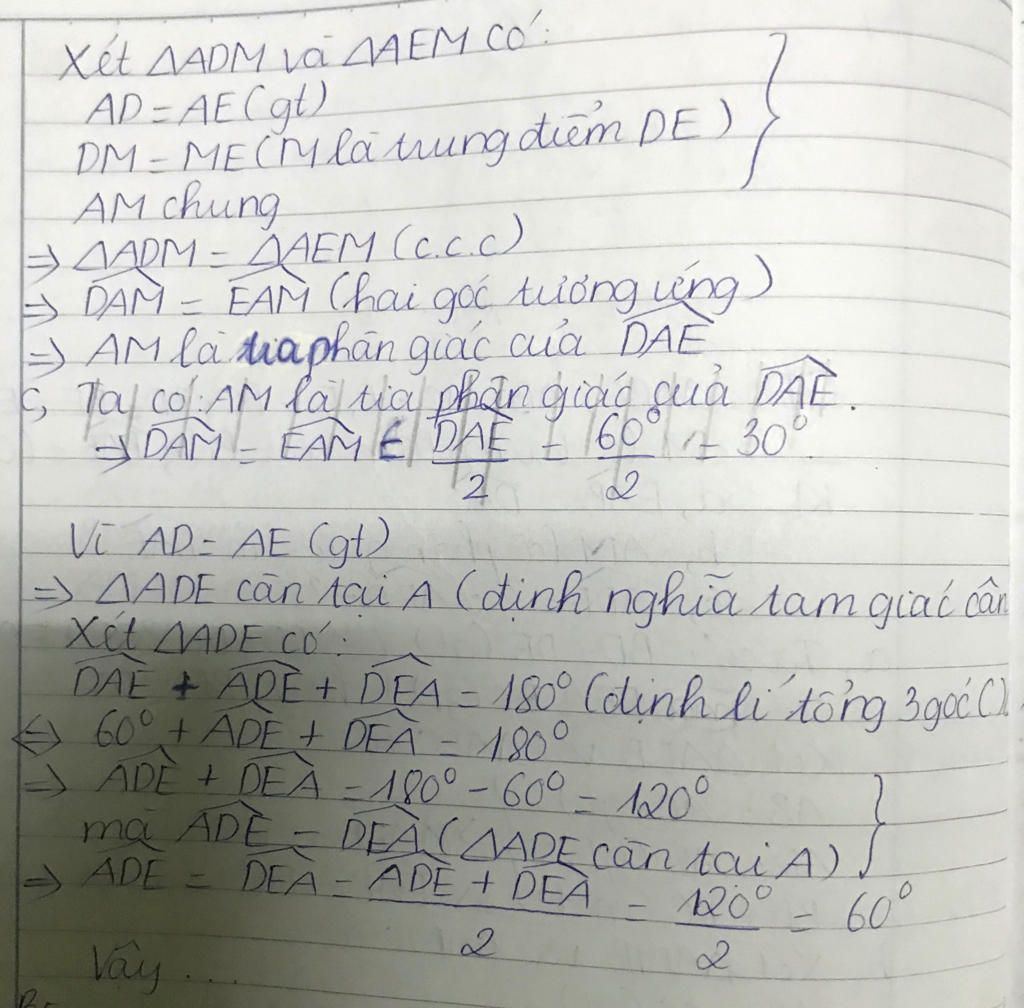 Xét ΔADM và ΔAEM có:
AD = AE (gt)
DM = ME (M là trung điểm DE)
AM chung
⇒ ΔADM = ΔAEM (c.c.c)
⇒ \widehat{DAM} = \widehat{EAM} (hai góc tương ứng)
⇒ AM là tia phân giác của \widehat{DAE}
c, Ta có: AM là tia phân giác của \widehat{DAE}.
⇒ \widehat{DAM} = \widehat{EAM} = \frac{\widehat{DAE}}{2} = \frac{60°}{2} = 30°.
Vì AD = AE (gt)
⇒ ΔADE cân tại A (định nghĩa tam giác cân
Xét ΔADE có:
\widehat{DAE} + \widehat{ADE} + \widehat{DEA} = 180° (định lí tổng 3 góc
⇔ 60° + \widehat{ADE} + \widehat{DEA} = 180°
⇒ \widehat{ADE} + \widehat{DEA} = 180° - 60° = 120°
mà \widehat{ADE} = \widehat{DEA} (ΔADE cân tại A)
⇒ \widehat{ADE} = \widehat{DEA} = \frac{\widehat{ADE} + \widehat{DEA}}{2} = \frac{120°}{2} = 60°
Vậy ....